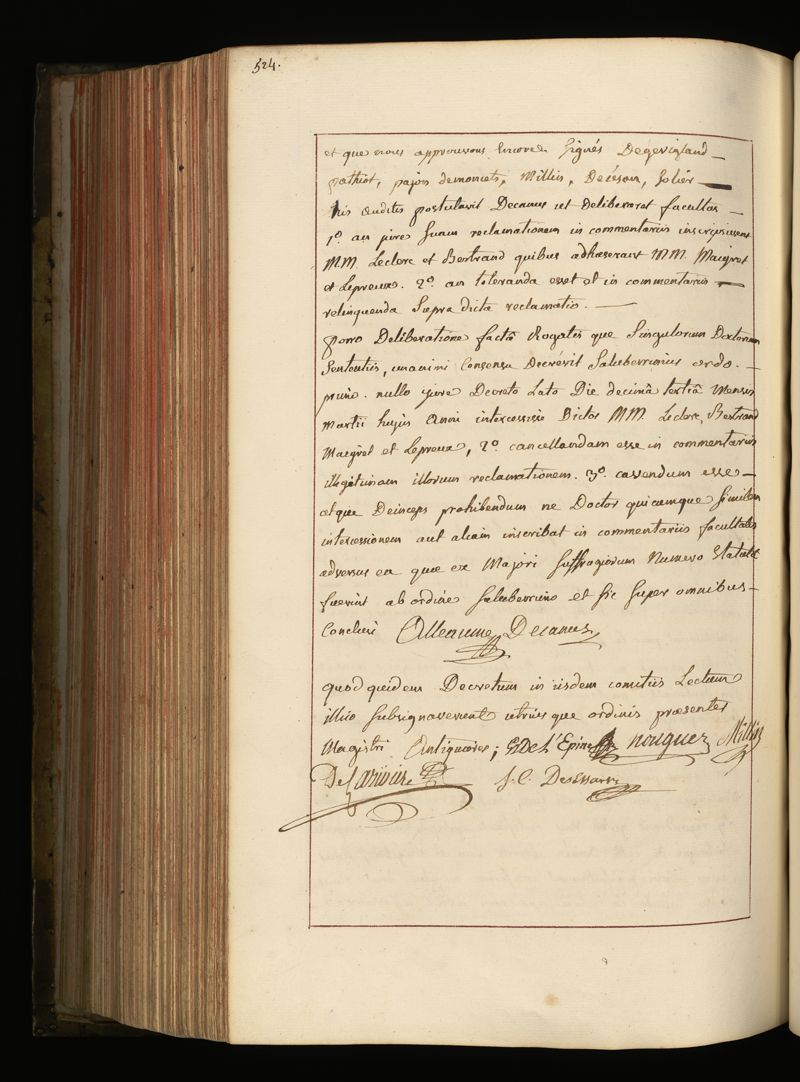 524.
et que nous approuvons encore. Signés Degevigland
pathiot, pajon demoncets, Millin, Decésan, Solier
his auditis postulavit Decanus ut deliberaret facultas
1º. an jure suam reclamationem in commentariis inscripsissent
M.M. Leclerc et Bertrand quibus adhaeserant M.M. Maigret
et Lepreux. 2º. an toleranda esset et in commentariis
relinquenda supra dicta reclamatio.
porro Deliberatione factâ Rogatis que Singulorum Doctorum
Sententiis, unanimi Consensu Decrevit Saluberrimus ordo.
primo. nullo jure Decreto Lato Die decimâ tertiâ Mensis
Martii hujus Anni intercessisse Dictos MM. Leclerc, Bertrand
Maigret et Lepreux, 2º. cancellandam esse in commentariis
illegitimam illorum reclamationem. 3º. cavendum esse
atque Deinceps prohibendum ne Doctor quicumque Similem
intercessionem aut aliam inscribat in commentariis facultatis
adversus ea quae ex Majori Suffragiorum Numero Statuta
fuerint ab ordine Saluberrimo et sic Super omnibus
Conclusi Alleaume Decanus
quod quidem Decretum in iisdem comitiis Lectum
illico Subsignaverunt utrius que ordinis praesentes
Magistri Antiquiores; G De L'Epine nouguez Millin
De Larivière J. C. Desessartz